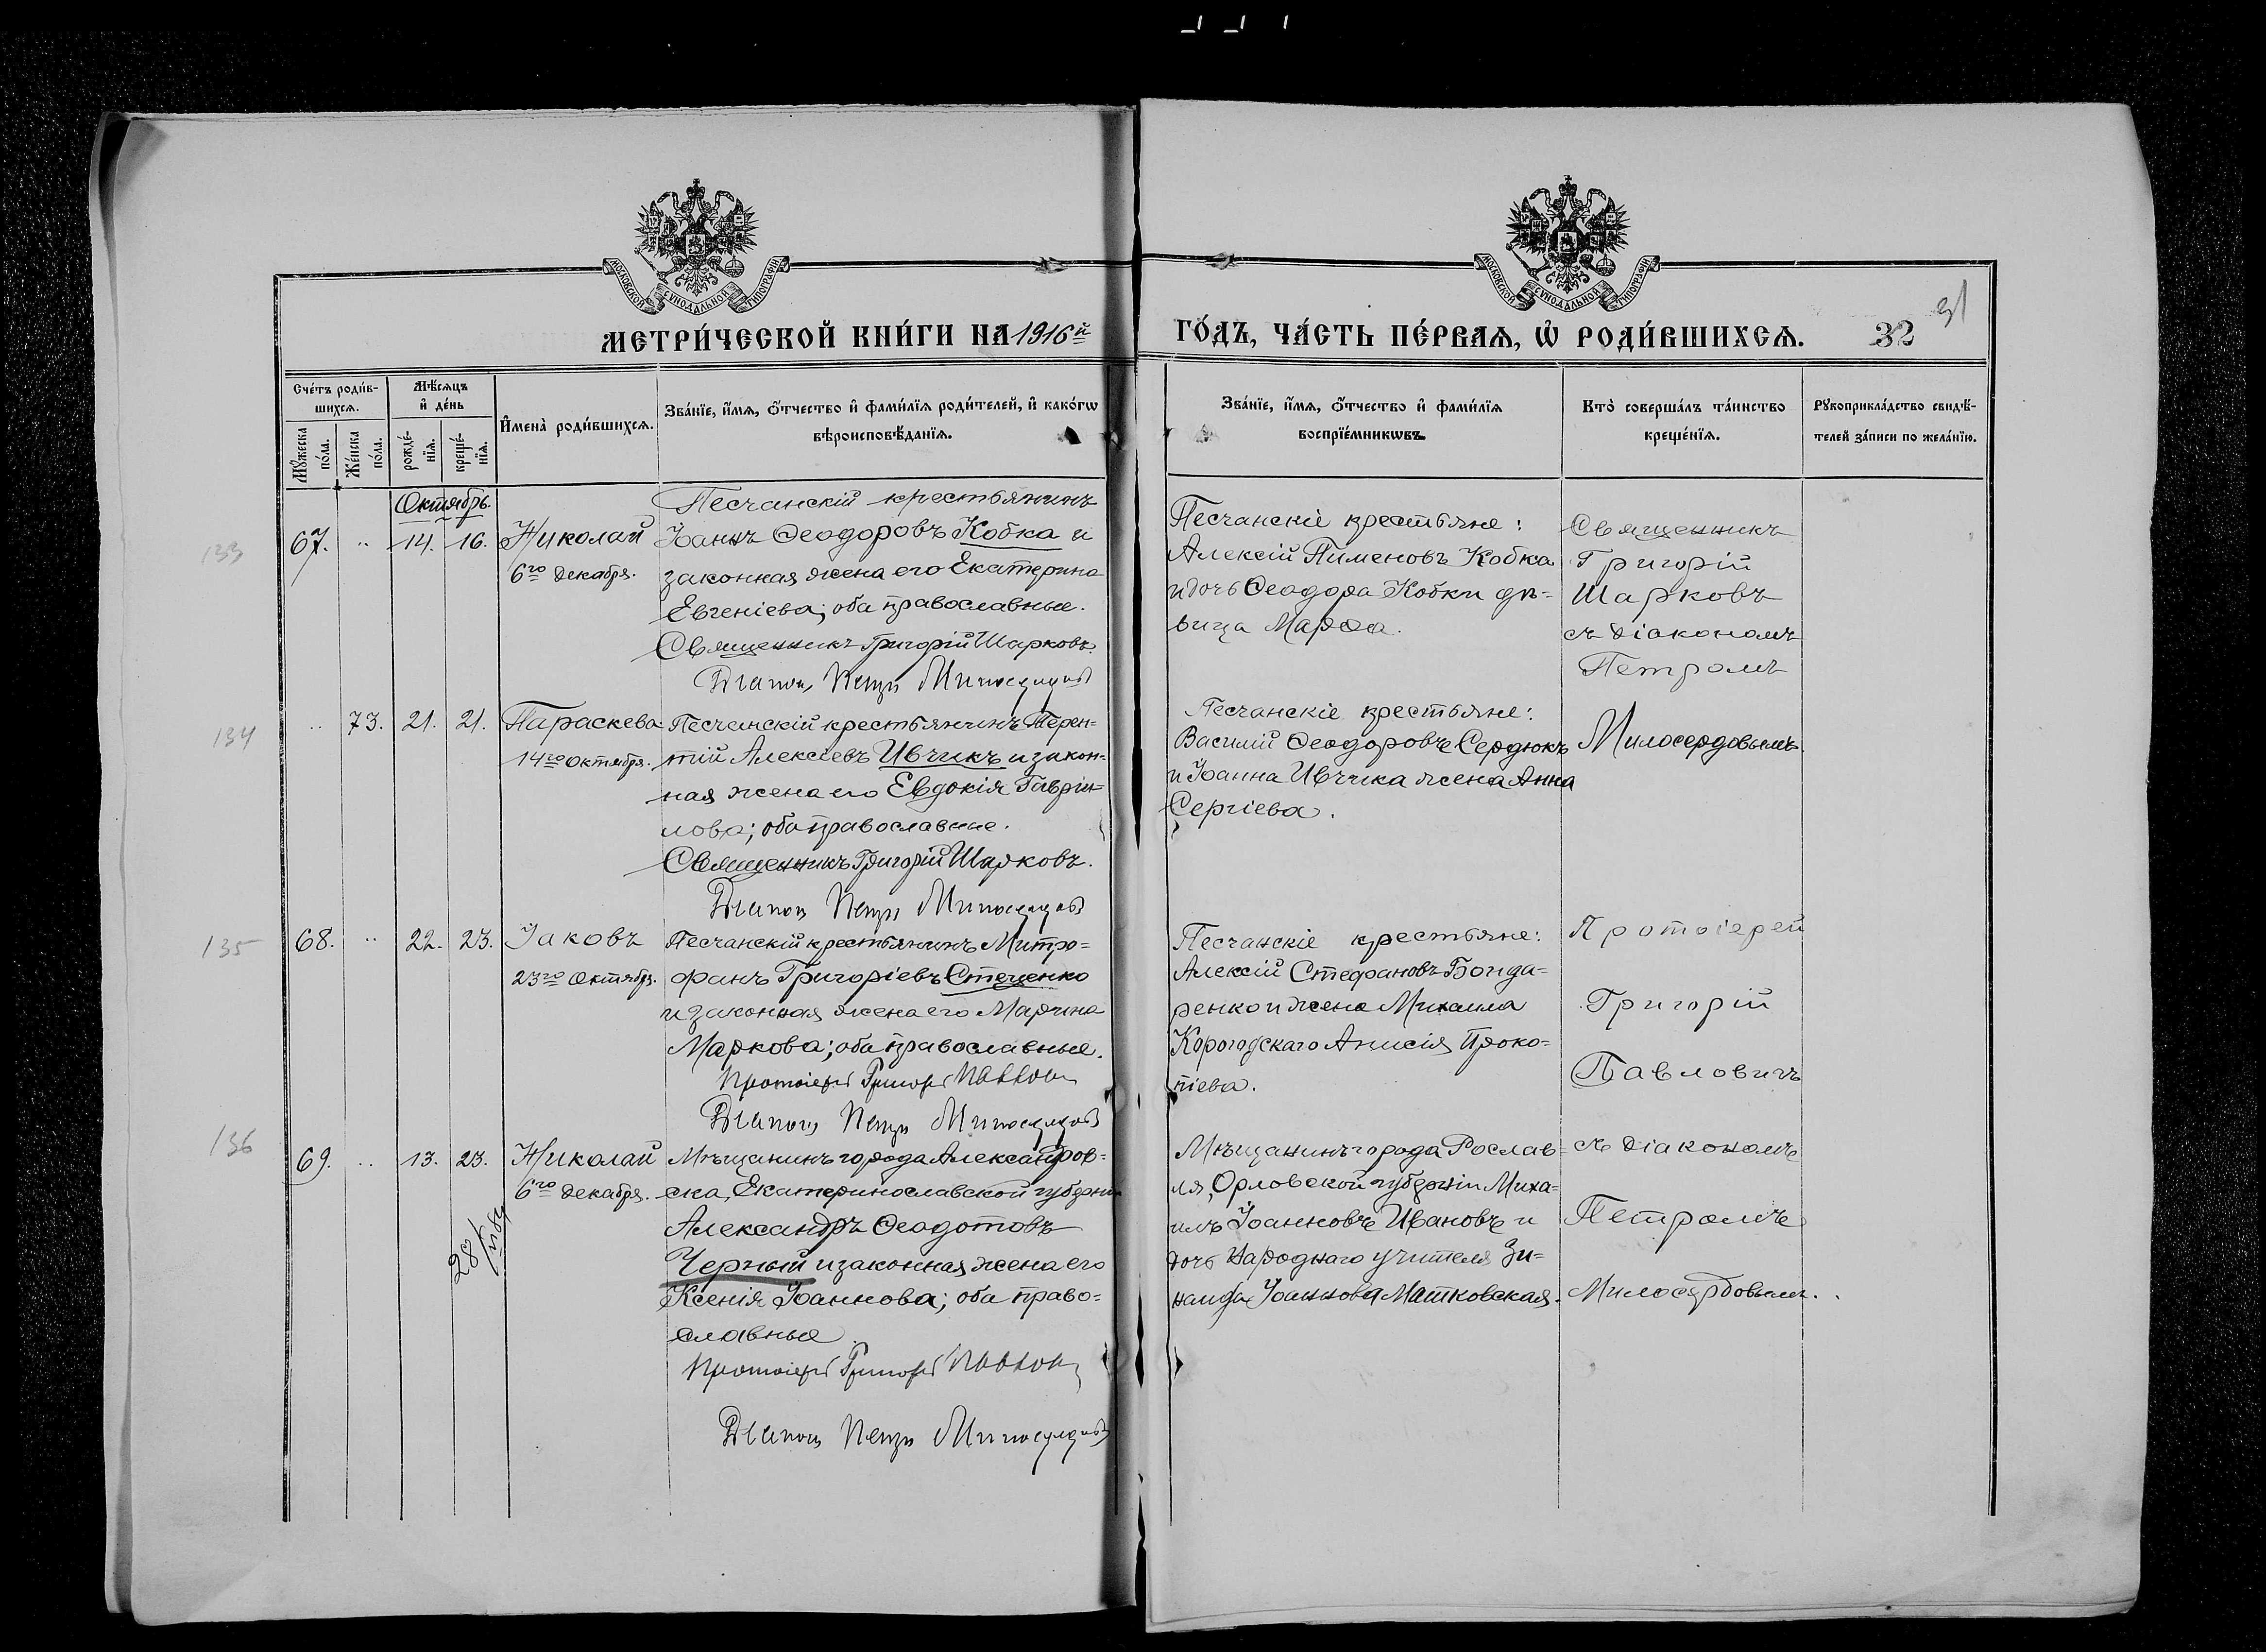 МОСКОВСКОЙ СѴНОДАЛЬНОЙ ТИПОГРАФІИ
МОСКОВСКОЙ СѴНОДАЛЬНОЙ ТИПОГРАФІИ
МЕТРИ́ЧЕСКОЙ КНИ́ГИ НА 1916й
ГО́ДЪ, ЧА́СТЬ ПЕ́РВАѦ, Ѽ РОДИ́ВШИХСѦ.
32
31
Сче́тъ роди́в-
шихсѧ.
Мѣ́сѧцъ
и҆ де́нь
Мꙋ́жеска
по́ла.
Же́нска
по́ла.
рожде́-
нїѧ.
креще́-
нїѧ.
И҆мена̀ роди́вшихсѧ.
Зва́нїе, и҆́мѧ, ѻ҆́тчество и҆ фами́лїѧ роди́телей, и҆ како́гѡ
вѣроисповѣ́данїѧ.
Зва́нїе, и҆́мѧ, ѻ҆́тчество и҆ фами́лїѧ
воспрїе́мникѡвъ.
Кто̀ соверша́лъ та́инство
креще́нїѧ.
Рꙋкоприкла́дство свидѣ́-
телей за́писи по жела́нїю.
Октябрь.
133
67.
"
14.
16.
Николай
6го Декабря.
Песчанскій крестьянинъ
Іоаннъ Ѳеодоровъ Кобка и
законная жена его Екатерина
Евгеніева; оба православные.
Священникъ Григорій Шарковъ.
Діаконъ Петръ Милосердовъ
Песчанскіе крестьяне:
Алексій Пименовъ Кобка
и дочь Ѳеодора Кобки дѣ-
вица Марѳа.
Священникъ
Григорій
Шарковъ
съ діакономъ
Петромъ
Милосердовымъ.
134
"
73.
21.
21.
Параскева
14го Октября.
Песчанскій крестьянинъ Терен-
тій Алексіевъ Ивчикъ и закон-
ная жена его Евдокія Гаврии-
лова; оба православные.
Священникъ Григорій Шарковъ.
Діаконъ Петръ Милосердовъ
Песчанскіе крестьяне:
Василій Ѳеодоровъ Сердюкъ
и Іоанна Ивчика жена Анна
Сергіева.
135
68.
"
22.
23.
Іаковъ
23го Октября.
Песчанскій крестьянинъ Митро-
фанъ Григоріевъ Стеценко
и законная жена его Марина
Маркова; оба православные.
Протоіерей Григорій Павловичъ
Діаконъ Петръ Милосердовъ
Песчанскіе крестьяне:
Алексій Стефановъ Бонда-
ренко и жена Михаила
Корогодскаго Анисія Проко-
піева.
Протоіерей
Григорій
Павловичъ
съ діакономъ
Петромъ
Милосердовымъ.
136
69.
"
13.
23.
Николай
6го Декабря.
Мѣщанинъ города Александров-
ска, Екатеринославской губерніи
Александръ Ѳеодотовъ
Черный и законная жена его
Ксенія Іоаннова; оба право-
славные
Протоіерей Григорій Павловичъ
Діаконъ Петръ Милосердовъ
Мѣщанинъ города Рослав-
ля, Орловской губерніи Миха-
илъ Іоанновъ Ивановъ и
дочь народнаго учителя Зи-
наида Іоаннова Матковская.